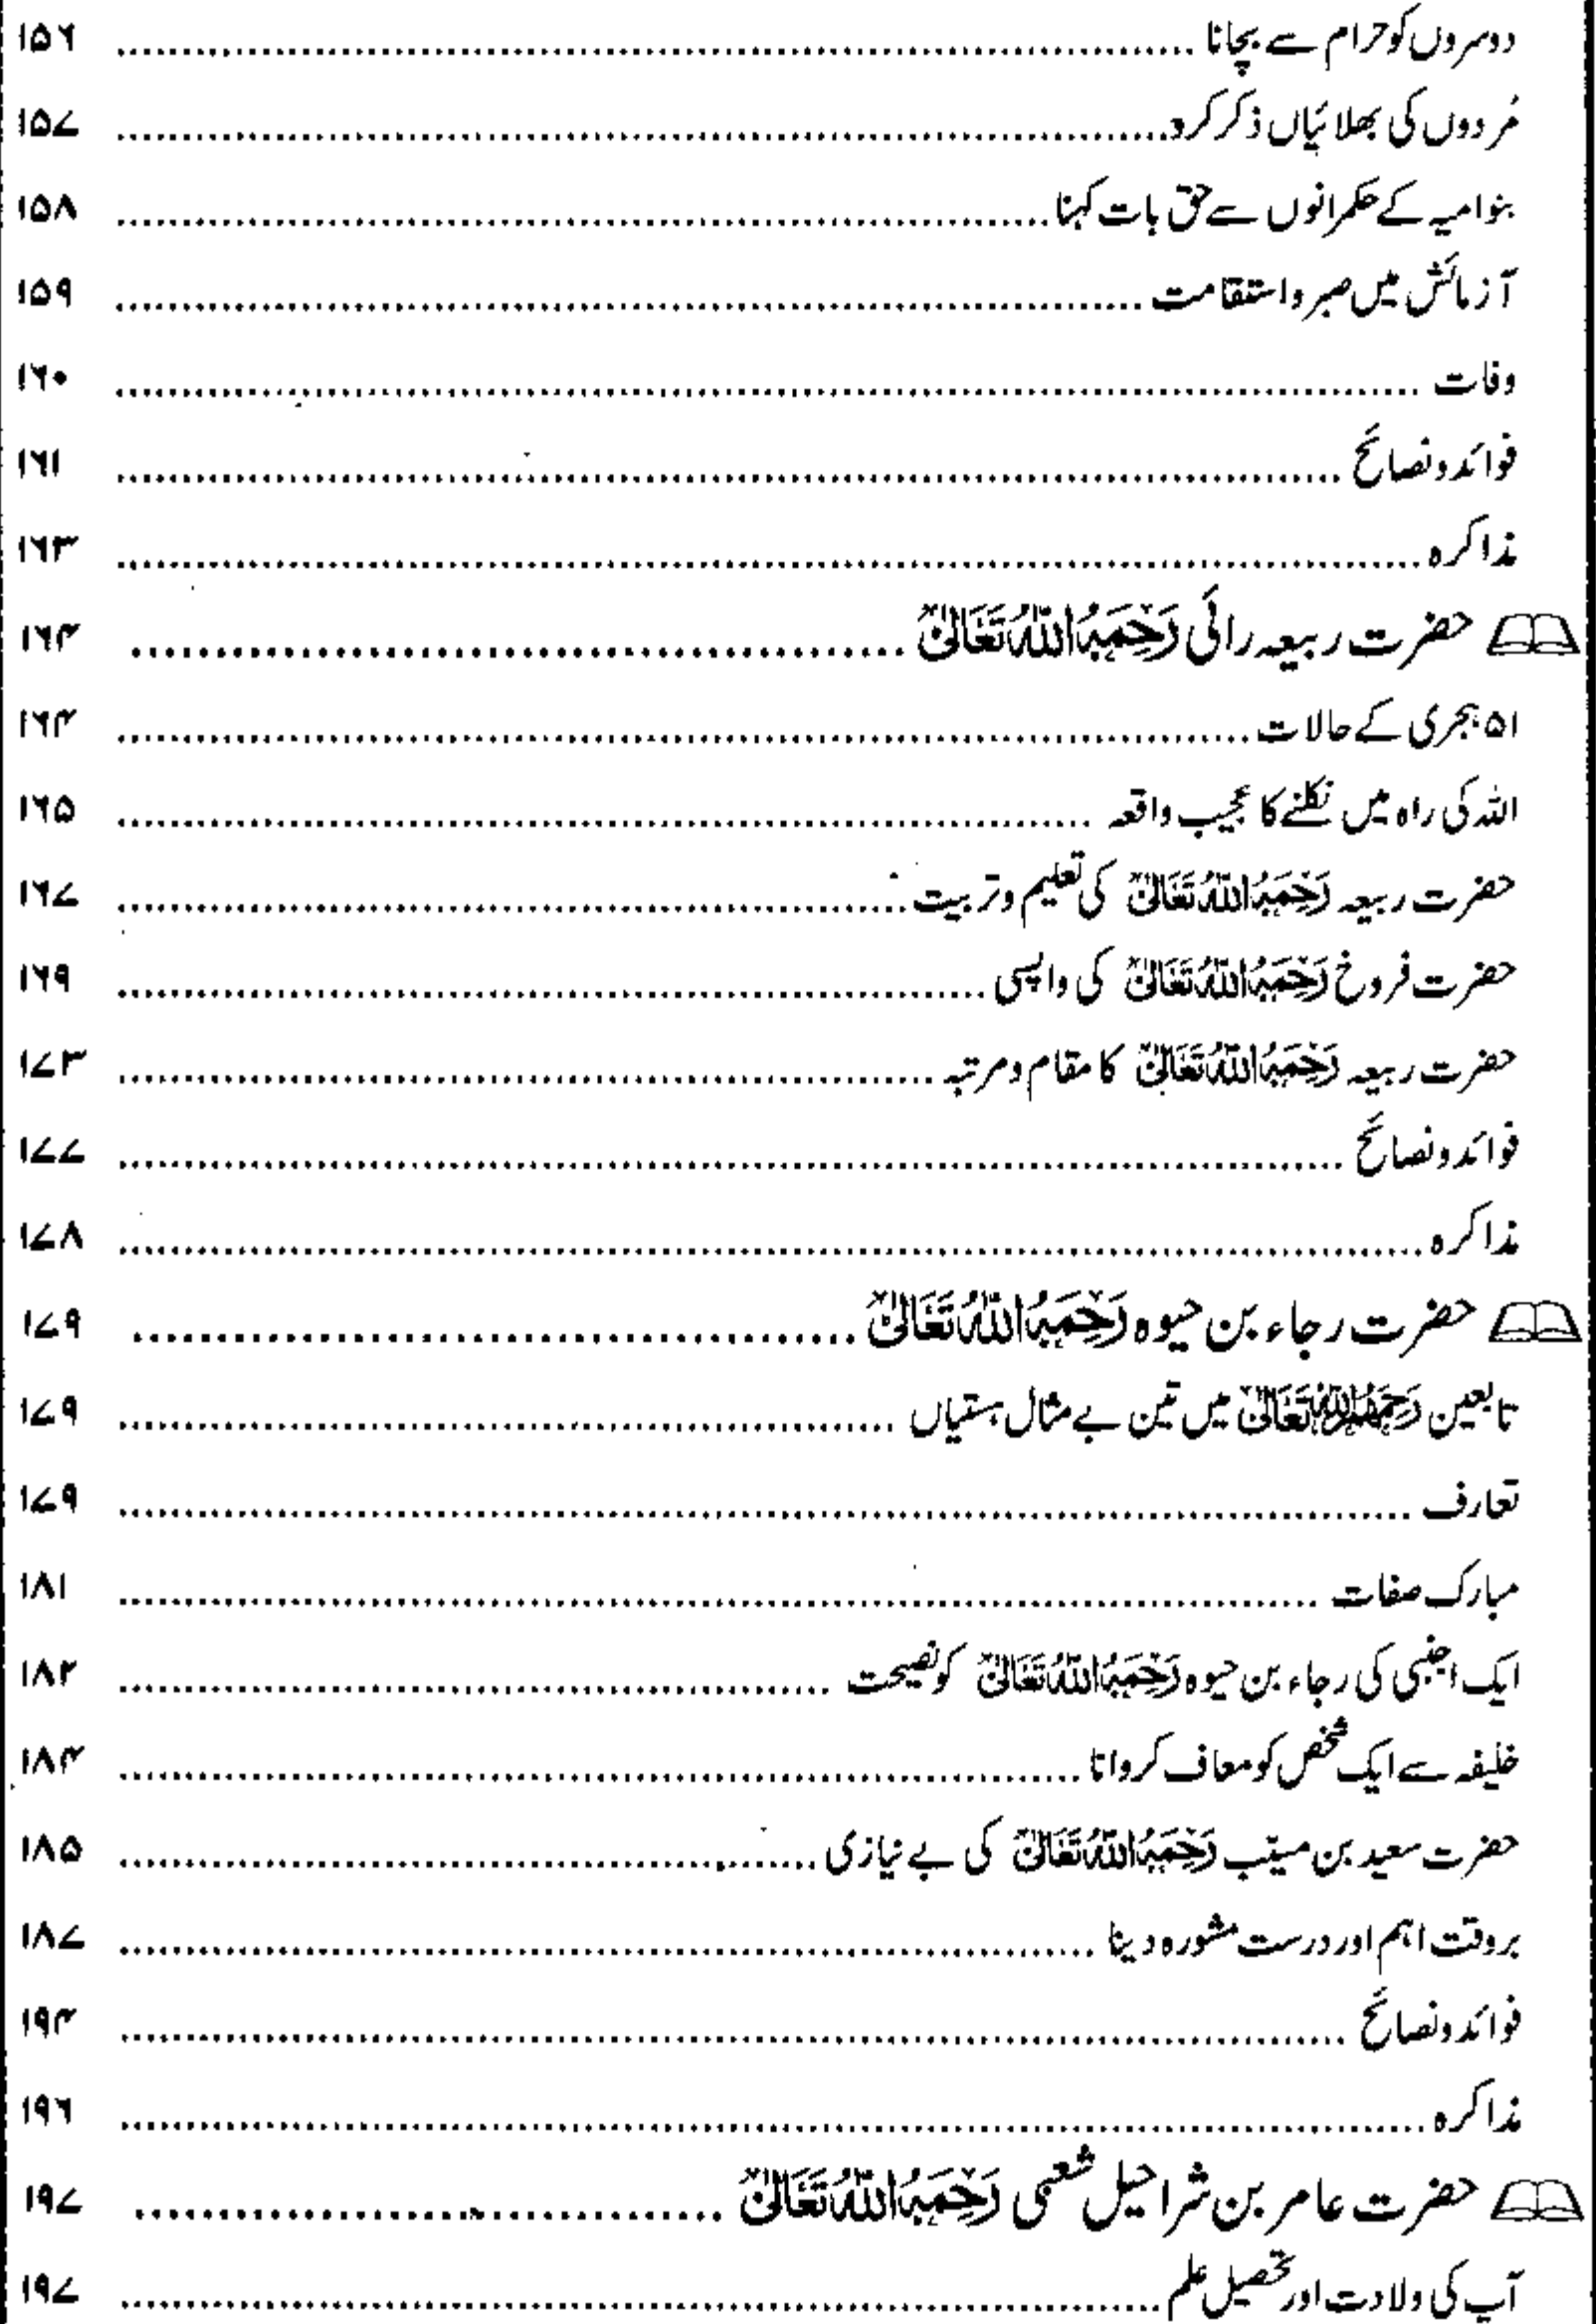 دوسروں کو حرام سے بچانا ........ ۱۵۶
مُردوں کی بھلائیاں ذکر کرو ........ ۱۵۷
بنوامیہ کے حکمرانوں سے حق بات کہنا ........ ۱۵۸
آزمائش میں صبر و استقامت ........ ۱۵۹
وفات ........ ۱۶۰
فوائد و نصائح ........ ۱۶۱
مذاکرہ ........ ۱۶۳
حضرت ربیعہ رائی رَحِمَهُ اللّٰهُ تَعَالٰی ........ ۱۶۴
۵۱ ہجری کے حالات ........ ۱۶۴
اللہ کی راہ میں نکلنے کا عجیب واقعہ ........ ۱۶۵
حضرت ربیعہ رَحِمَهُ اللّٰهُ تَعَالٰی کی تعلیم و تربیت ........ ۱۶۷
حضرت فروخ رَحِمَهُ اللّٰهُ تَعَالٰی کی واپسی ........ ۱۶۹
حضرت ربیعہ رَحِمَهُ اللّٰهُ تَعَالٰی کا مقام و مرتبہ ........ ۱۷۳
فوائد و نصائح ........ ۱۷۷
مذاکرہ ........ ۱۷۸
حضرت رجاء بن حیوہ رَحِمَهُ اللّٰهُ تَعَالٰی ........ ۱۷۹
تابعین رَحِمَهُمُ اللّٰهُ تَعَالٰی میں تین بے مثال ہستیاں ........ ۱۷۹
تعارف ........ ۱۷۹
مبارک صفات ........ ۱۸۱
ایک اجنبی کی رجاء بن حیوہ رَحِمَهُ اللّٰهُ تَعَالٰی کو نصیحت ........ ۱۸۲
خلیفہ سے ایک شخص کو معاف کروانا ........ ۱۸۴
حضرت سعید بن میتب رَحِمَهُ اللّٰهُ تَعَالٰی کی بے نیازی ........ ۱۸۵
بروقت اہم اور درست مشورہ دینا ........ ۱۸۷
فوائد و نصائح ........ ۱۹۴
مذاکرہ ........ ۱۹۶
حضرت عامر بن شراحیل شعبی رَحِمَهُ اللّٰهُ تَعَالٰی ........ ۱۹۷
آپ کی ولادت اور تحصیل علم ........ ۱۹۷